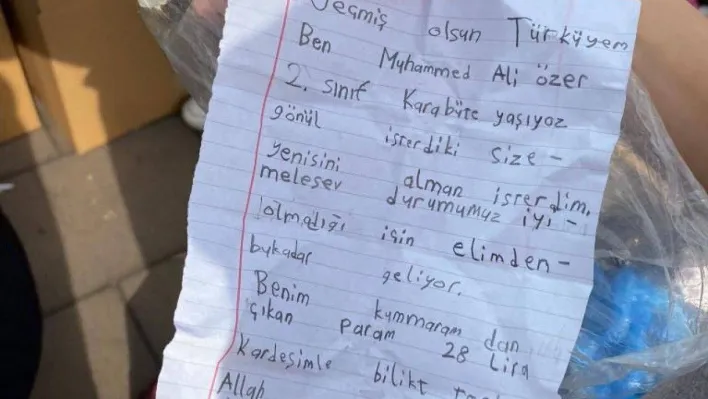 Geçmiş olsun Türkiyem
Ben Muhammed Ali özer
2. sınıf Karabüte yaşıyoz
gönül isterdiki size -
yenisini alman isterdim,
melesev durumumuz iyi -
olmadığı için elimden -
bukadar geliyor.
Benim kummaram dan
çıkan param 28 Lira
Kardeşimle bilikt
Allah